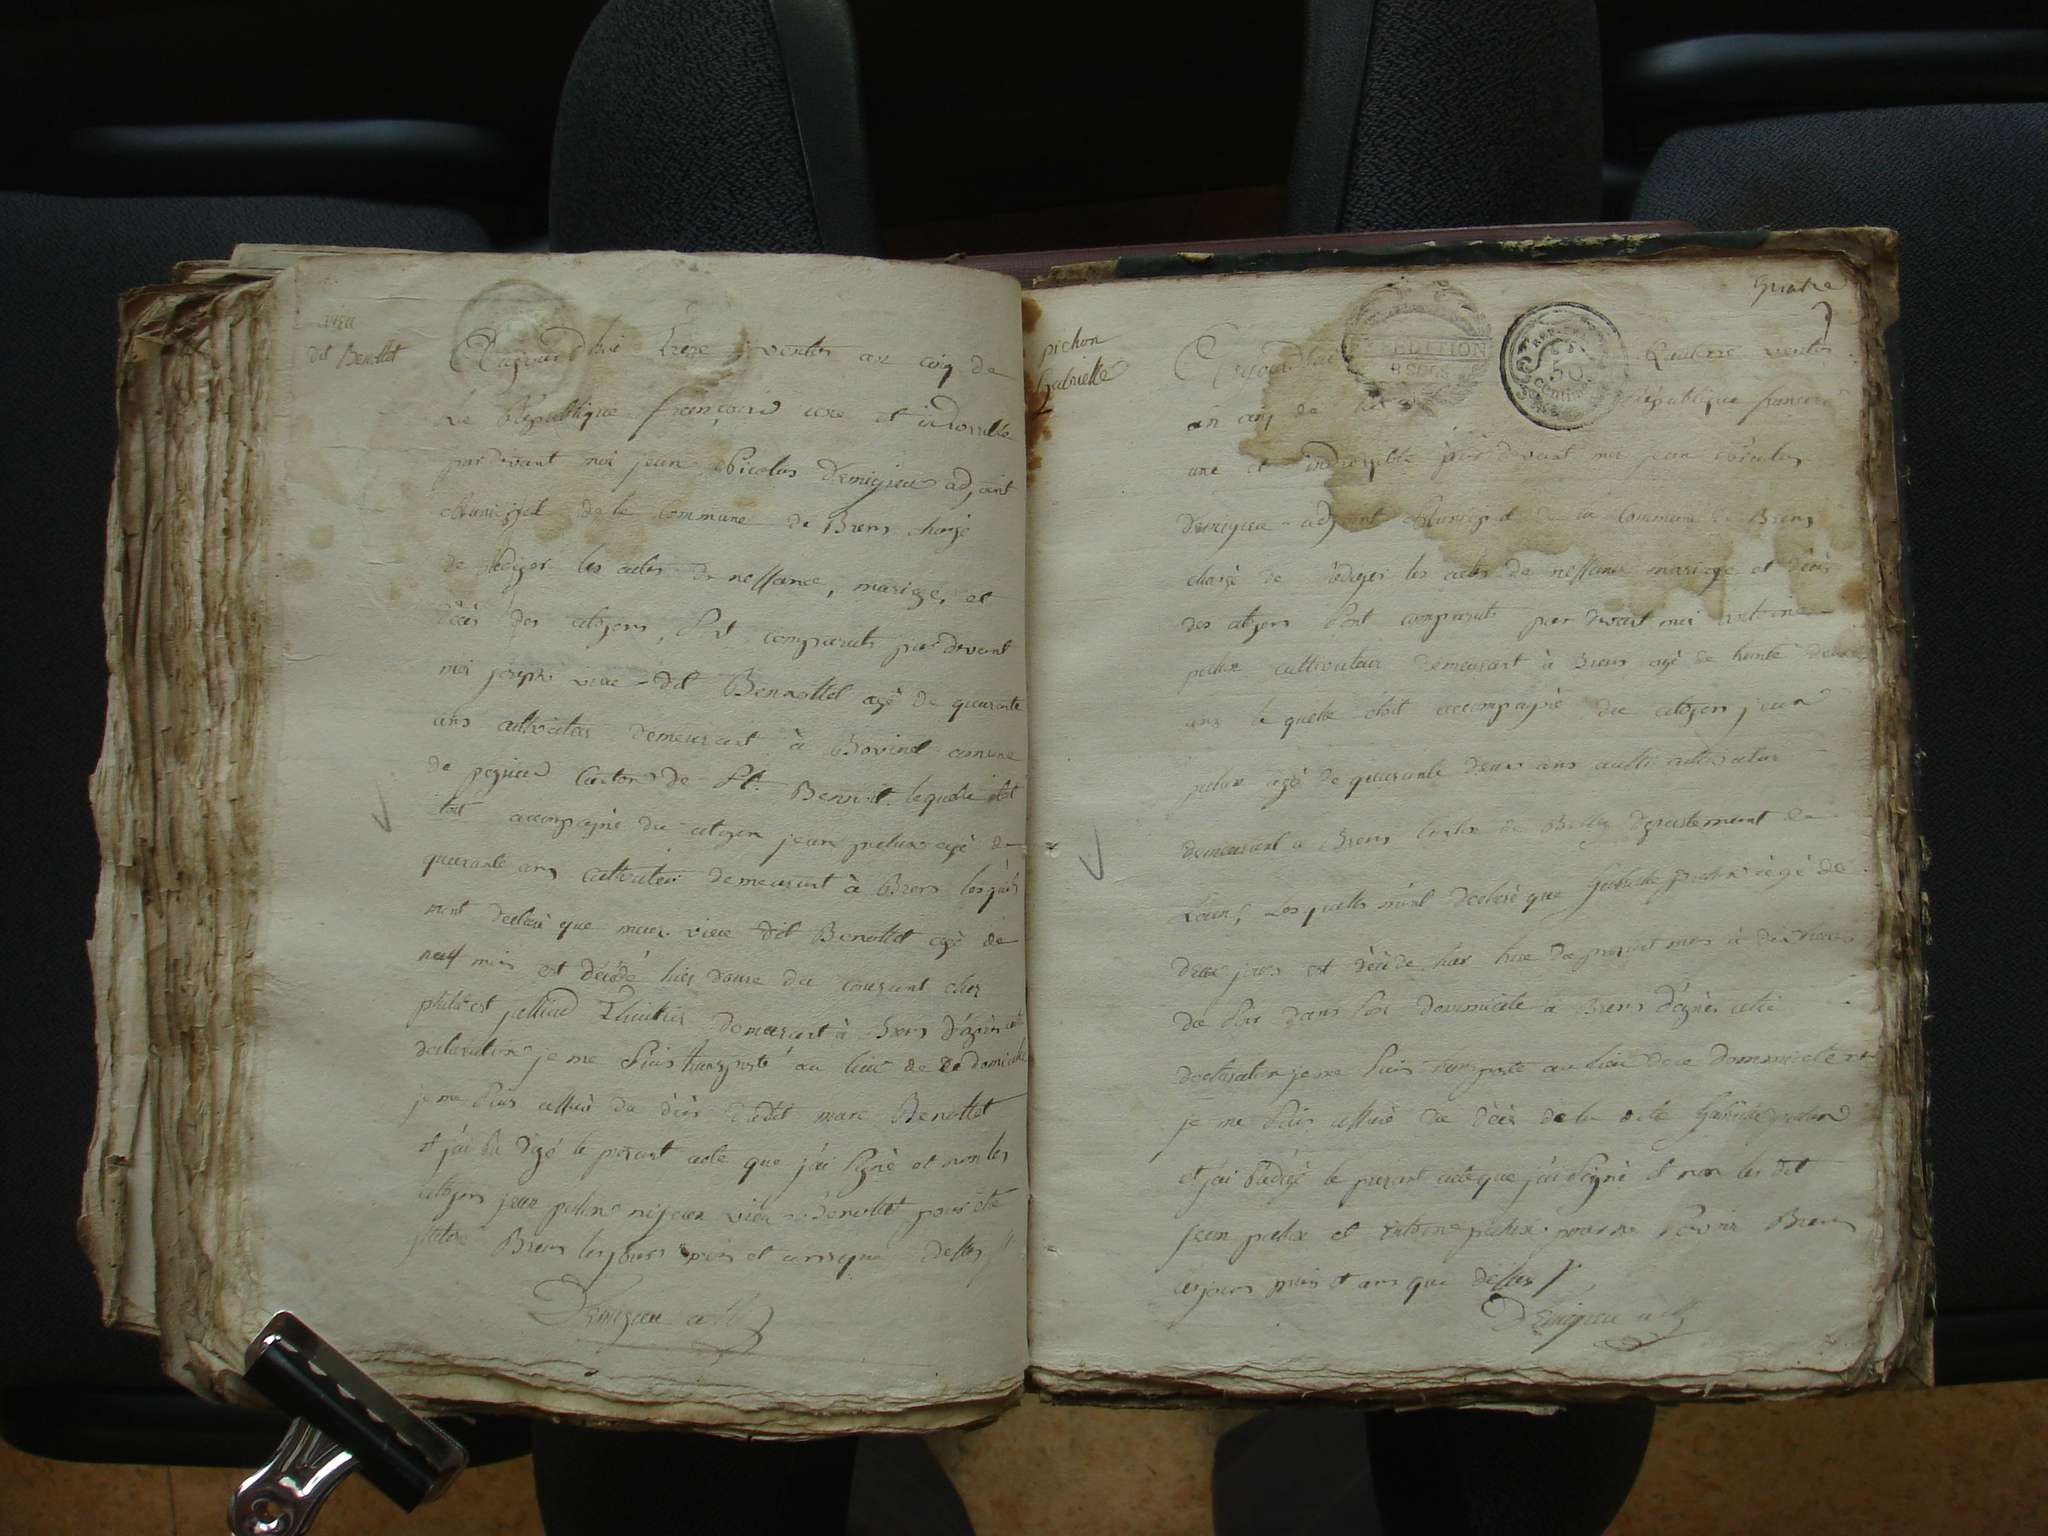 dit Benottet
Aujourd'hui treze ventos an cinq de
la République françoise une et indivisible
pardevant moi jean Nicolas Demigieu adjoint
Municipal de la commune de Brens chargé
de rédiger les actes de nessance, mariage, et
décès des citoyens, sont comparuts pardevant
moi joseph viere dit Bennottet agé de quarante
ans cultivateur demeurant à
de pezieu canton de St. Benoit lequelle étoit
étoit accompagné du citoyen jean agé de
quarante ans cultivateur demeurant à Brens lesquels
mont déclaré que marc viere dit Benottet agé de
neuf mois est décédé hier douze du courant chez
demeurant à Brens d'après cette
declaration je me suis transporté au lieu de ce domicile
je me suis assuré du décès dudit marc Benottet
et j'ai rédigé le présent acte que j'ai signé et non les
citoyen jean ni jean viere Benottet pour être
Brens les jours mois et an que dessus
Demigieu adj
pichon
Gabrielle
Quatre
EXPEDITION
RSOLS
REP. FRA
50
Centimes
Aujourd'hui Quatorze ventos
an cinq de la République francaise
une et indivisible par devant moi jean Nicolas
Demigieu adjoint Municipal de la Commune de Brens
chargé de rédiger les actes de nessance mariage et décès
des citoyens sont comparuts par devant moi antoine
pichon cultivateur demeurant à Brens agé de trente deux
ans le quelle étoit accompagné du citoyen jean
pichon agé de quarante deux ans aussi cultivateur
demeurant à Brens canton de Belley département de
Lain, Les quelles m'ont déclaré que Gabrielle pichon agé de
deux jours est décédé hier treze du présent mois à dix heures
de soir dans son dommicile à Brens d'après cette
declaration je me suis transporté au lieu de ce dommicile et
je me suis assuré du décès de la dite Gabrielle pichon
et j'ai rédigé le présent acte que j'ai signé et non les dit
jean pichon et antoine pichon pour ne savoir Brens
les jours mois et ans que dessus
Demigieu adj